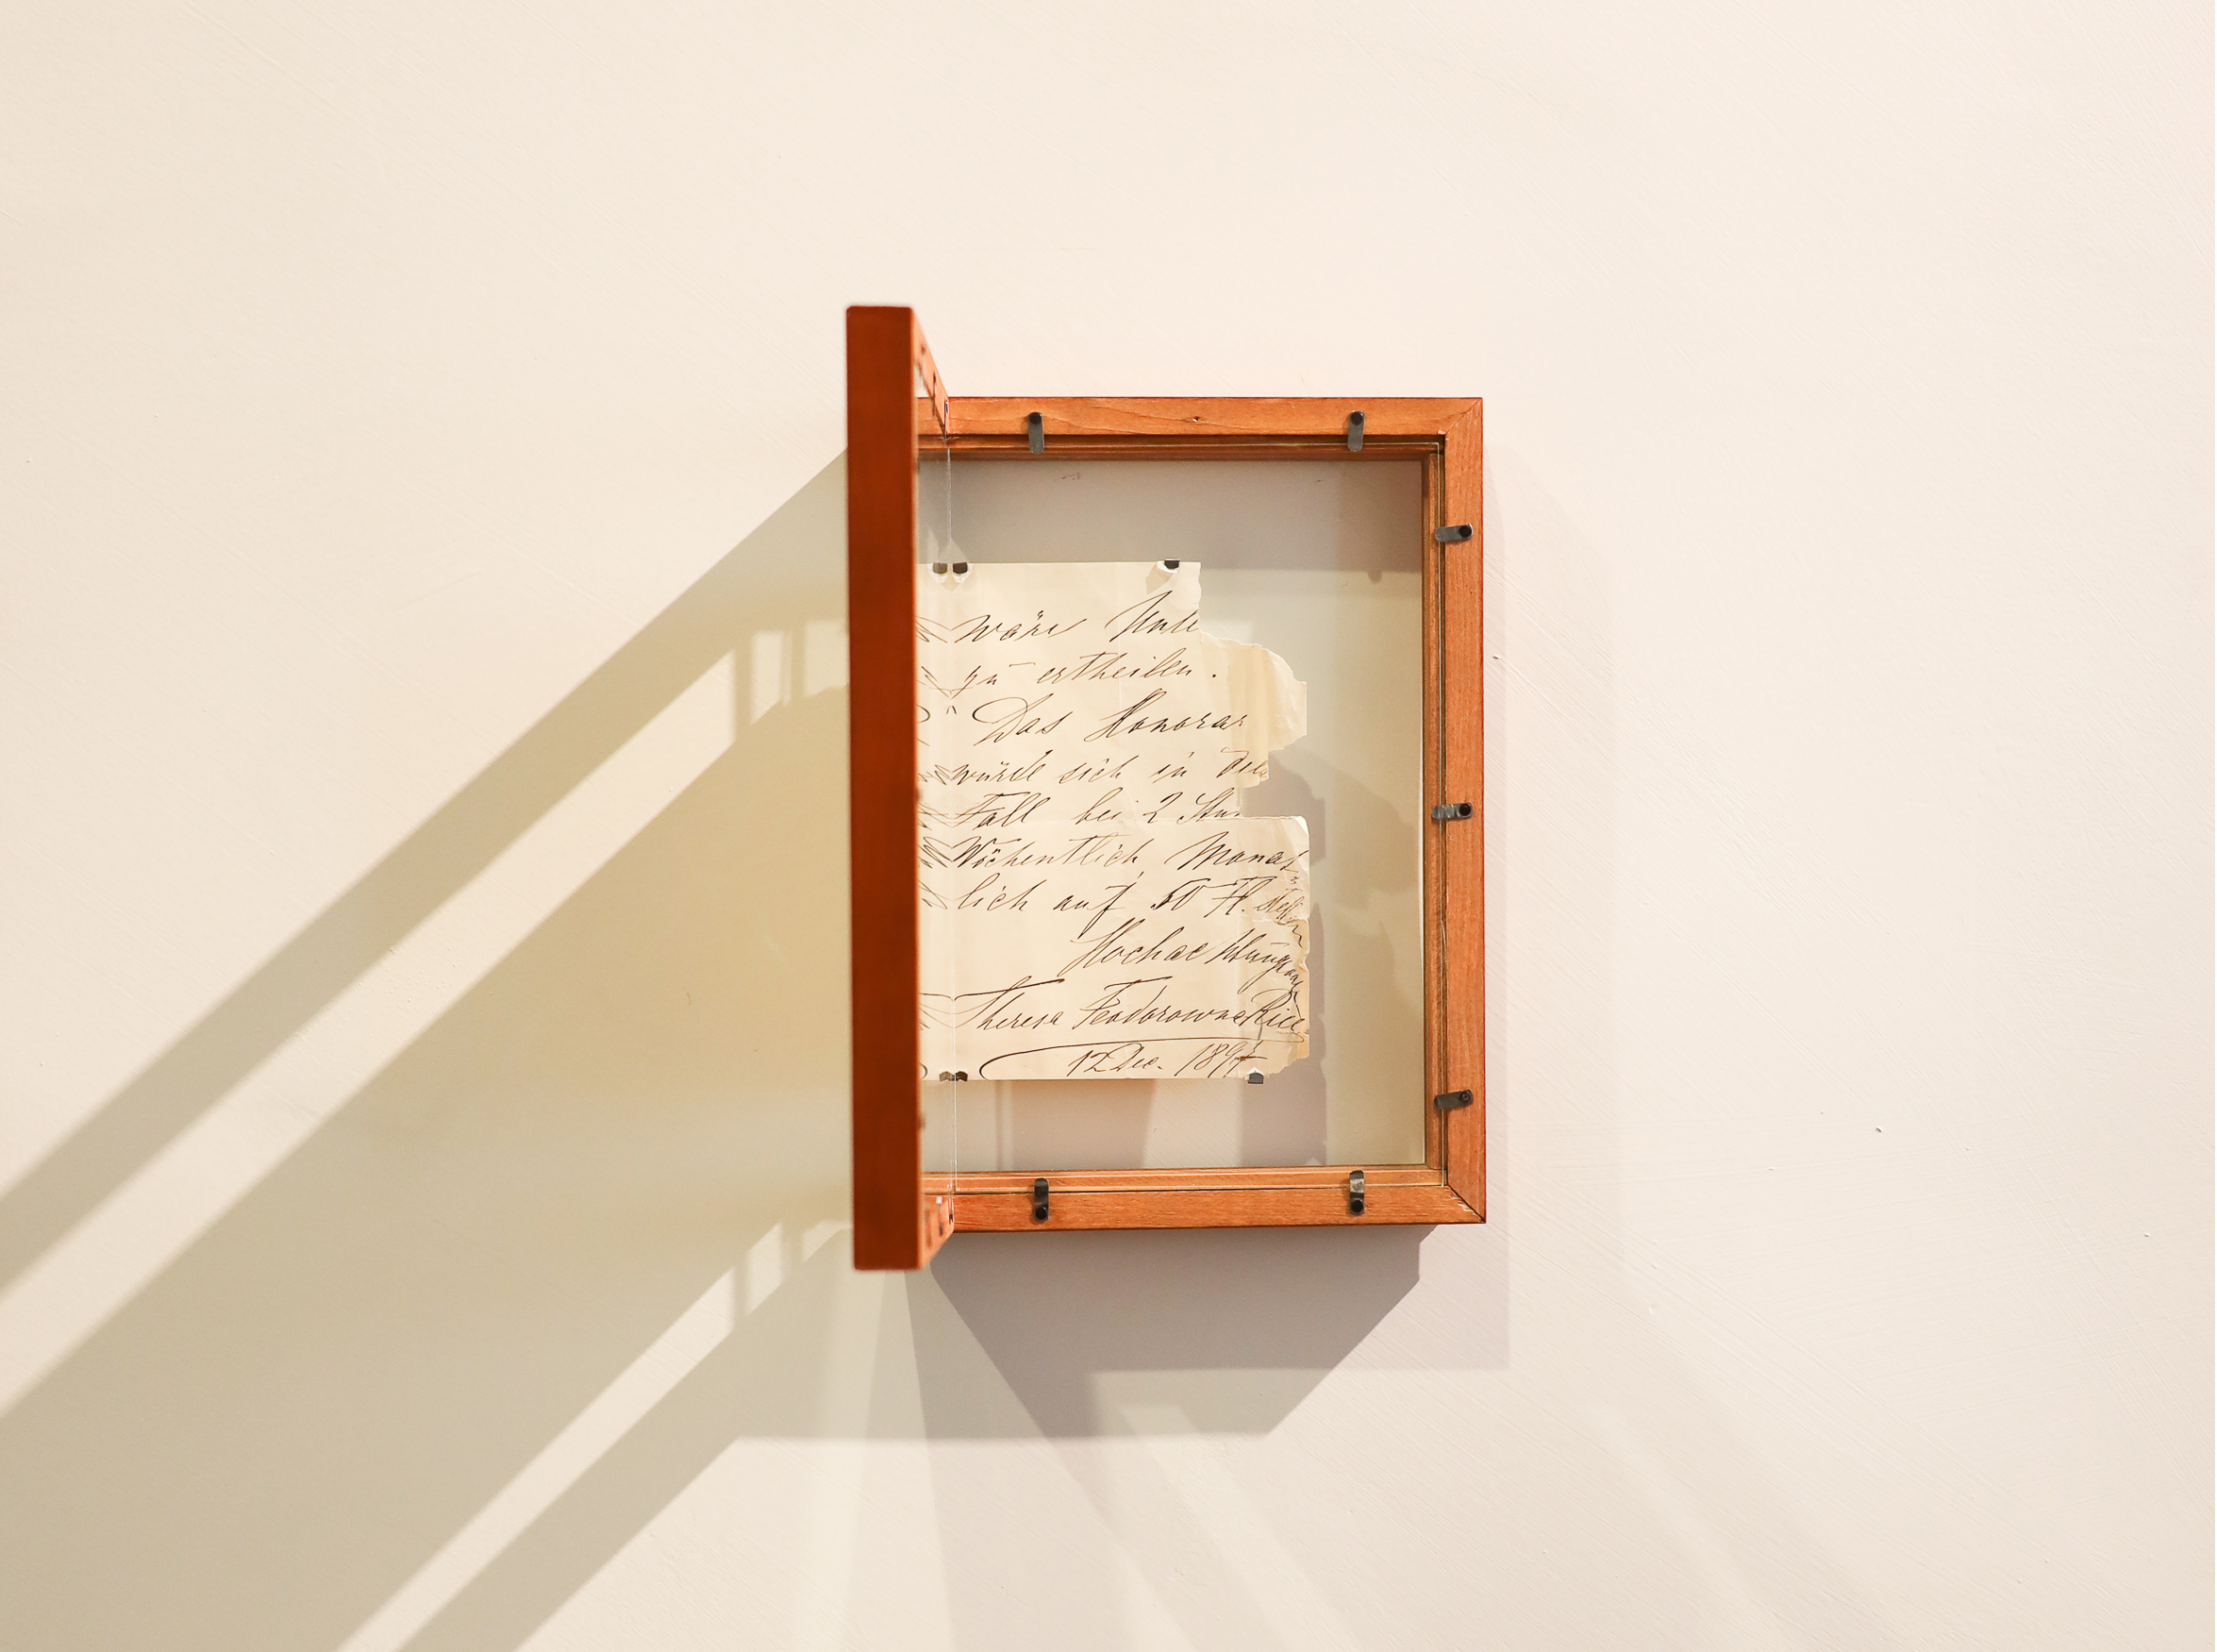 wäre
zu ertheilen.
Das Honorar
würde sich in
Fall bei 2 Stun
Wöchentlich, Monat
lich auf 50 Fl. stellen
Hochachtungs
Theresa Feodorowna Ries
12 Dec. 1897